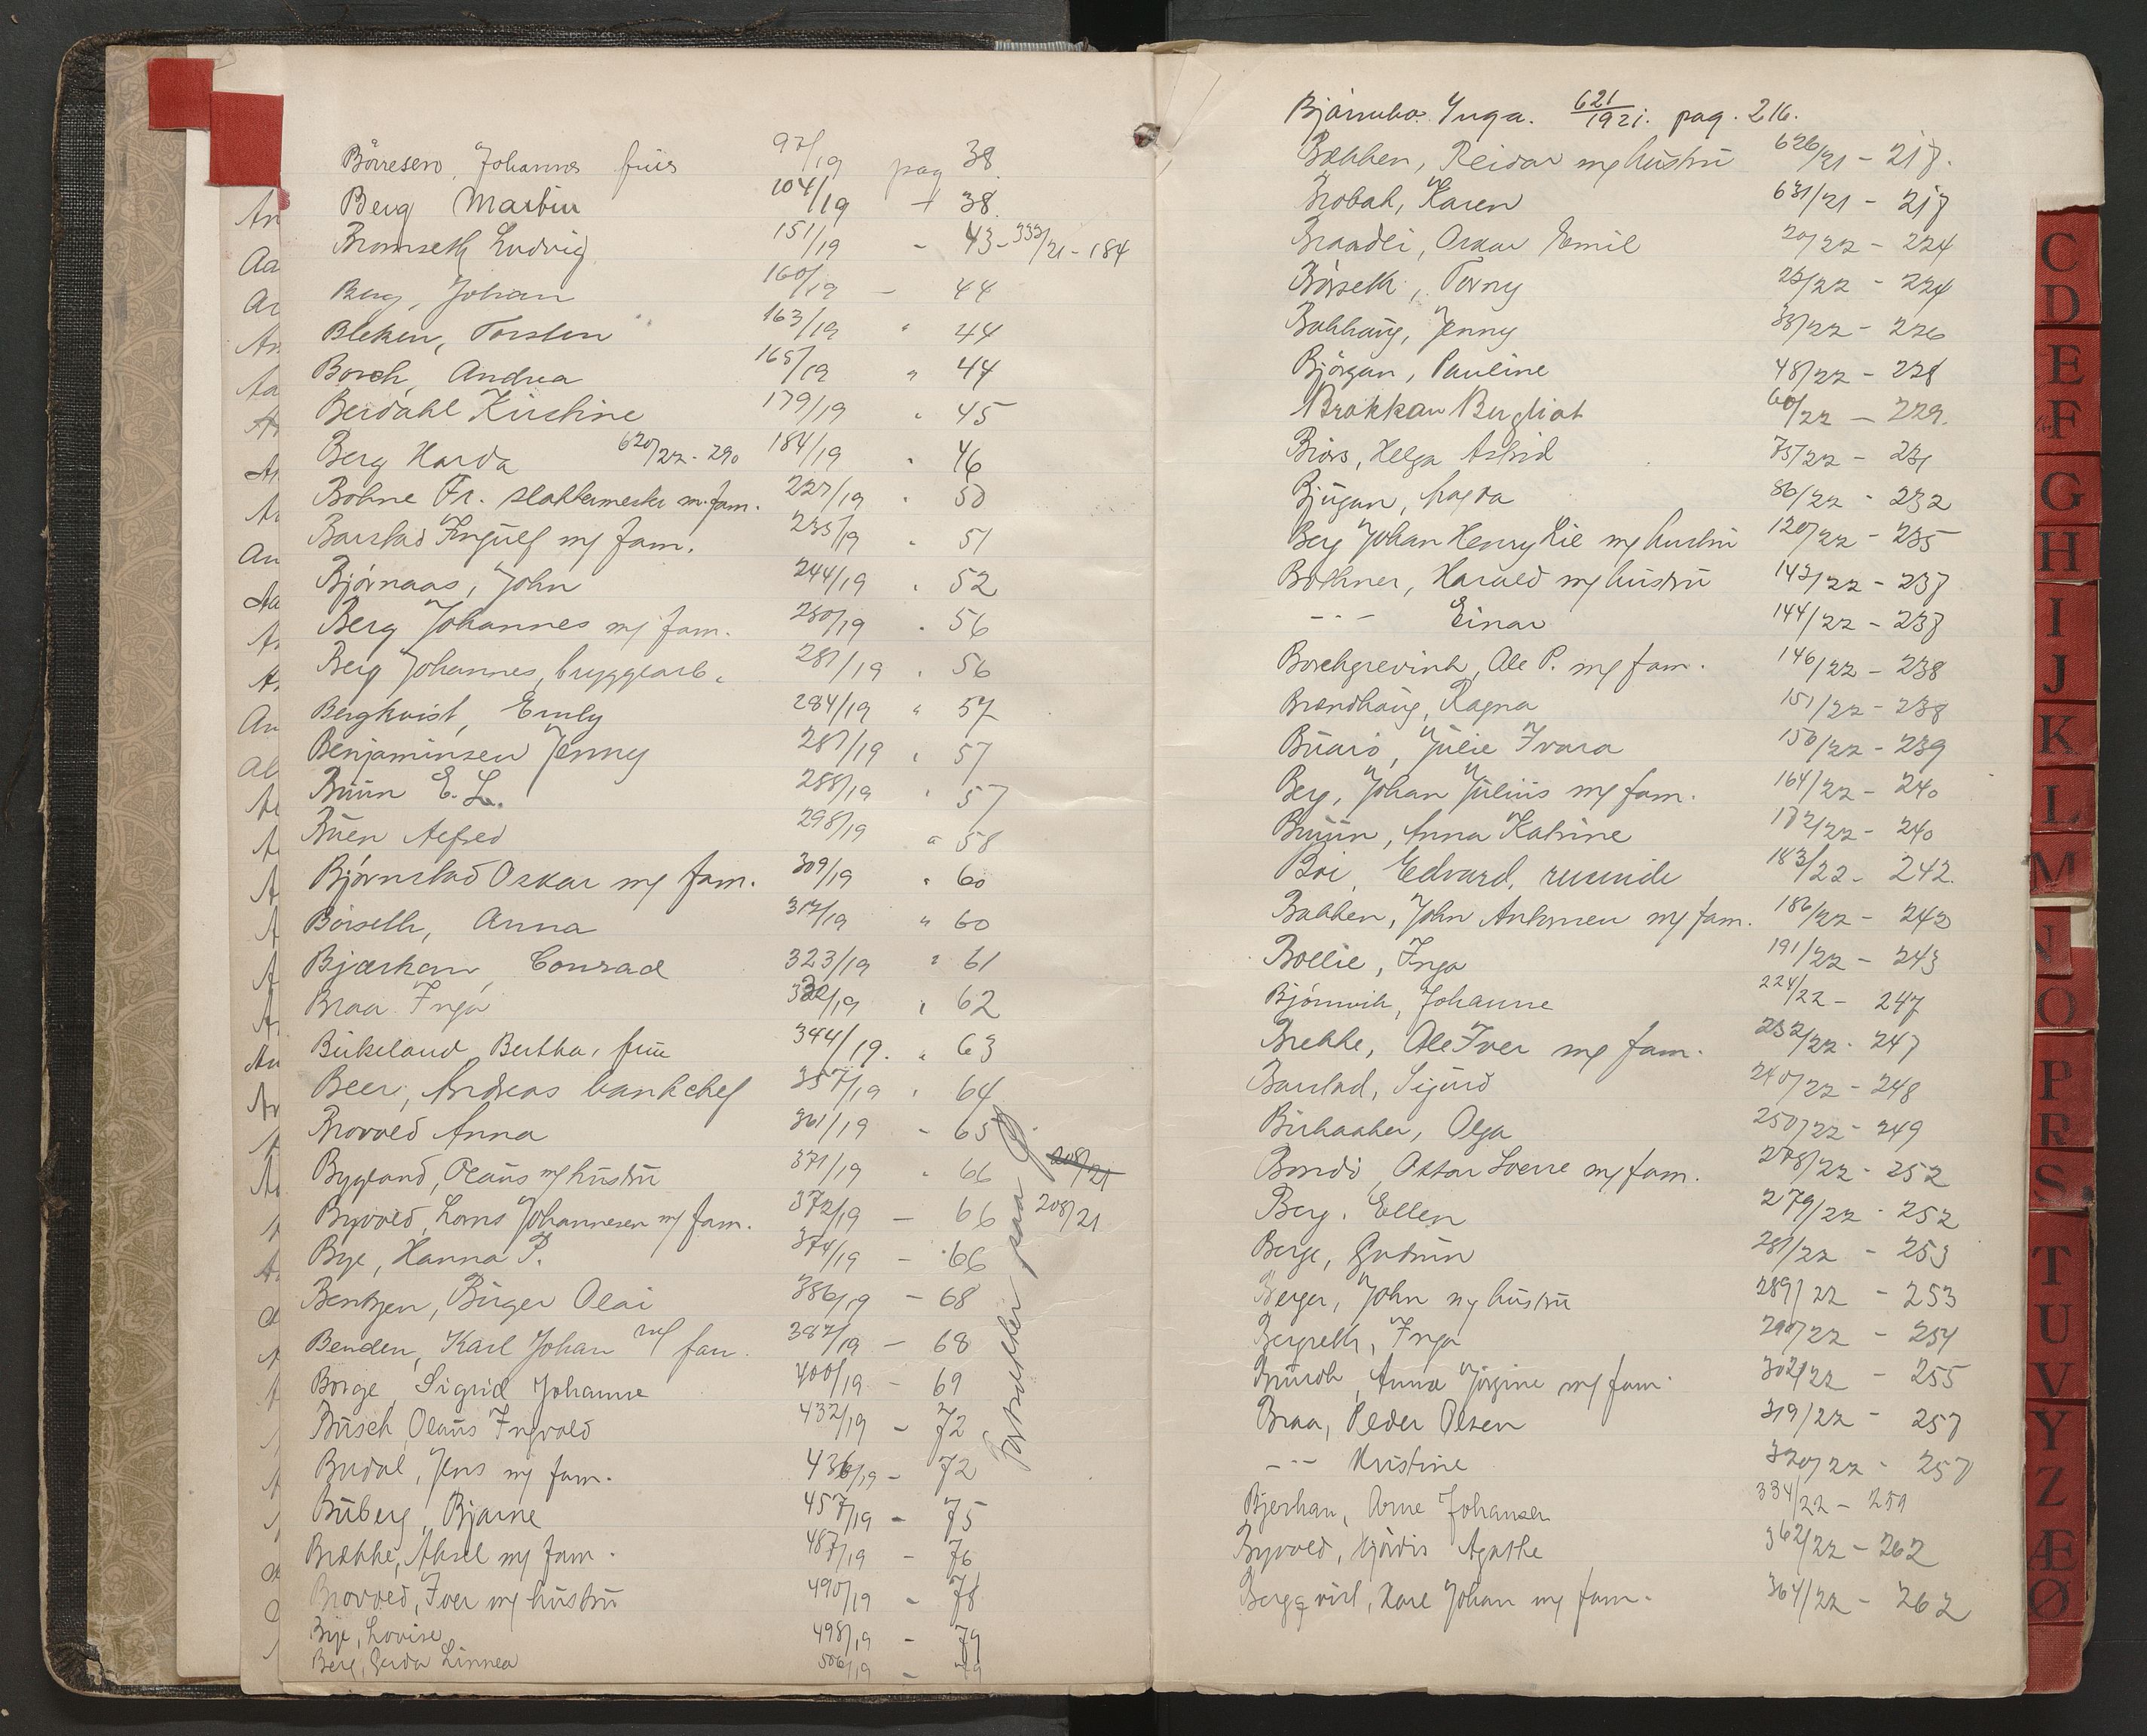 Börresen, Johannes frues 97/19 pag 38.
Berg Martin 104/19 + 38.
Bromseth Ludvig 151/19 - 43 - 333/21 - 184
Berg, Johan 160/19 - 44
Bleken, Torsten 163/19 " 44
Borch, Andrea 165/19 " 44
Berdahl Kirstine 179/19 " 45
Berg Harda 620/22 - 290 184/19 " 46
Bohne Fr. slaktermester m. fam. 227/19 " 50
Barstad Ingulf m/ fam. 235/19 " 51
Bjørnaas, John 244/19 " 52
Berg Johannes m/ fam. 280/19 " 56
Berg Johannes, bryggearb. 281/19 " 56
Bergkvist, Emly 284/19 " 57
Benjaminsen Jenny 287/19 " 57
Bruun E. L. 288/19 " 57
Buen Alfred 298/19 " 58
Bjørnstad Oskar m/ fam. 309/19 " 60
Börseth, Anna 317/19 " 60
Bjærkan, Conrad 323/19 " 61
Braa Inga 332/19 " 62
Birkeland, Bertha, frue 344/19. " 63
Beer, Andreas bankchef 357/19 " 64
Brovold Anna 361/19 - 65
Bygland, Olaus m/ hustru 371/19 " 66 208/21
Byvold, Lorns Johannesen m/ fam. 372/19 - 66 208/21
Bye, Hanna P. 374/19 - 66
Bentzen, Birger Olai 386/19 - 68
Benden, Karl Johan m/ fam. 387/19 - 68
Borge, Sigrid Johanne 400/19 - 69
Busch, Olaus Ingvald 432/19 - 72
Budal, Jens m/ fam. 436/19 - 72
Buberg, Bjarne 457/19 - 75
Brække, Aksel m/ fam. 487/19 - 76
Brovold, Iver m/ hustru 490/19 - 78
Bye, Lovise 498/19 - 79
Berg, Gerda Linnea 506/19 - 79
Fortsætter paa
Bjørnebo Inga. 621/1921. pag. 216.
Bakken, Reidar m/ hustru 626/21 - 217.
Brobak, Karen 631/21 - 217
Braadli, Oskar Emil 20/22 - 224
Börseth, Torny 25/22 - 224
Bakhaug, Jenny 33/22 - 226
Björgan, Pauline 48/22 - 228
Brakkan Bergliot 60/22 - 229.
Broes, Helga Astrid 75/22 - 231
Bjugan, Magda 86/22 - 232
Berg Johan Henry Lie m/ hustru 120/22 - 235
Bothner, Harald m/ hustru 143/22 - 237
--- Einar 144/22 - 237
Borchgrevink, Ole P. m/ fam. 146/22 - 238
Brændhaug, Ragna 151/22 - 238
Buarö, Julie Ivara 156/22 - 239
Berg, Johan Julius m/ fam. 164/22 - 240
Bruun, Anna Katrine 172/22 - 240
Boi, Edvard, 183/22 - 242.
Bakken, John Antonsen m/ fam. 186/22 - 243
Bollie, Inga 191/22 - 243
Bjørnvik, Johanne 224/22 - 247
Brekke, Ole Iver m/ fam. 232/22 - 247
Barstad, Sigurd 240/22 - 248
Birkaaker, Olga 250/22 - 249
Bondö, Ottar Sverre m/ fam. 278/22 - 252
Berg, Ellen 279/22 - 252
Berge, Gudrun 281/22 - 253
Berger, John m/ hustru 289/22 - 253
Bergseth, Inga 290/22 - 254
Anna Jörgine m/ fam. 302/22 - 255
Braa, Peder Olsen 319/22 - 257
--- Kristine 320/22 - 257
Bjerkan, Arne Johansen 334/22 - 259
Byvold, Hjördis Agathe 362/22 - 262
Bergqvist, Karl Johan m/ fam. 364/22 - 262
C
D
E
F
G
H
I
J
K
L
M
N
O
P
R
S
T
U
V
Y
Z
Æ
Ø